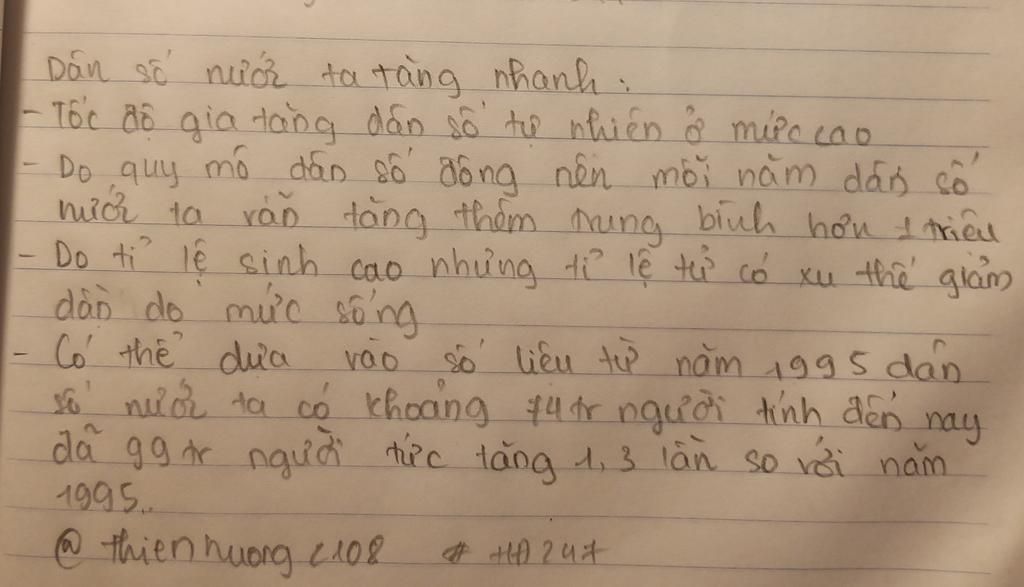 Dân số nước ta tăng nhanh:
- Tốc độ gia tăng dân số tự nhiên ở mức cao
- Do quy mô dân số đông nên mỗi năm dân số
nước ta vẫn tăng thêm trung bình hơn 1 triệu
- Do tỉ lệ sinh cao nhưng tỉ lệ tử có xu thế giảm
dần do mức sống
- Có thể dựa vào số liệu từ năm 1995 dân
số nước ta có khoảng 74tr người tính đến nay
đã 99tr người tức tăng 1,3 lần so với năm
1995..
@thienhuongc108 # HA247